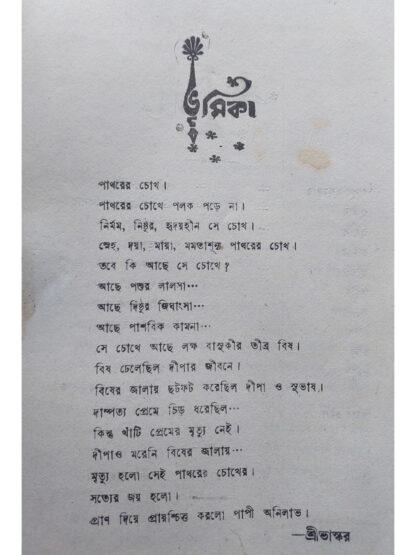 ভূমিকা
পাথরের চোখ।
পাথরের চোখে পলক পড়ে না।
নির্মম, নিষ্ঠুর, হৃদয়হীন সে চোখ।
স্নেহ, দয়া, মায়া, মমতাশূন্য পাথরের চোখ।
তবে কি আছে সে চোখে?
আছে পশুর লালসা···
আছে নিষ্ঠুর জিঘাংসা···
আছে পাশবিক কামনা···
সে চোখে আছে লক্ষ বাসুকীর তীব্র বিষ।
বিষ ঢেলেছিল দীপার জীবনে।
বিষের জালায় ছটফট করেছিল দীপা ও সুভাষ।
দাম্পত্য প্রেমে চিড় ধরেছিল···
কিন্তু খাঁটি প্রেমের মৃত্যু নেই।
দীপাও মরেনি বিষের জালায়···
মৃত্যু হলো সেই পাথরের চোখের।
সত্যের জয় হলো।
প্রাণ দিয়ে প্রায়শ্চিত্ত করলো পাপী অনিলাভ।
—শ্রীভাস্কর